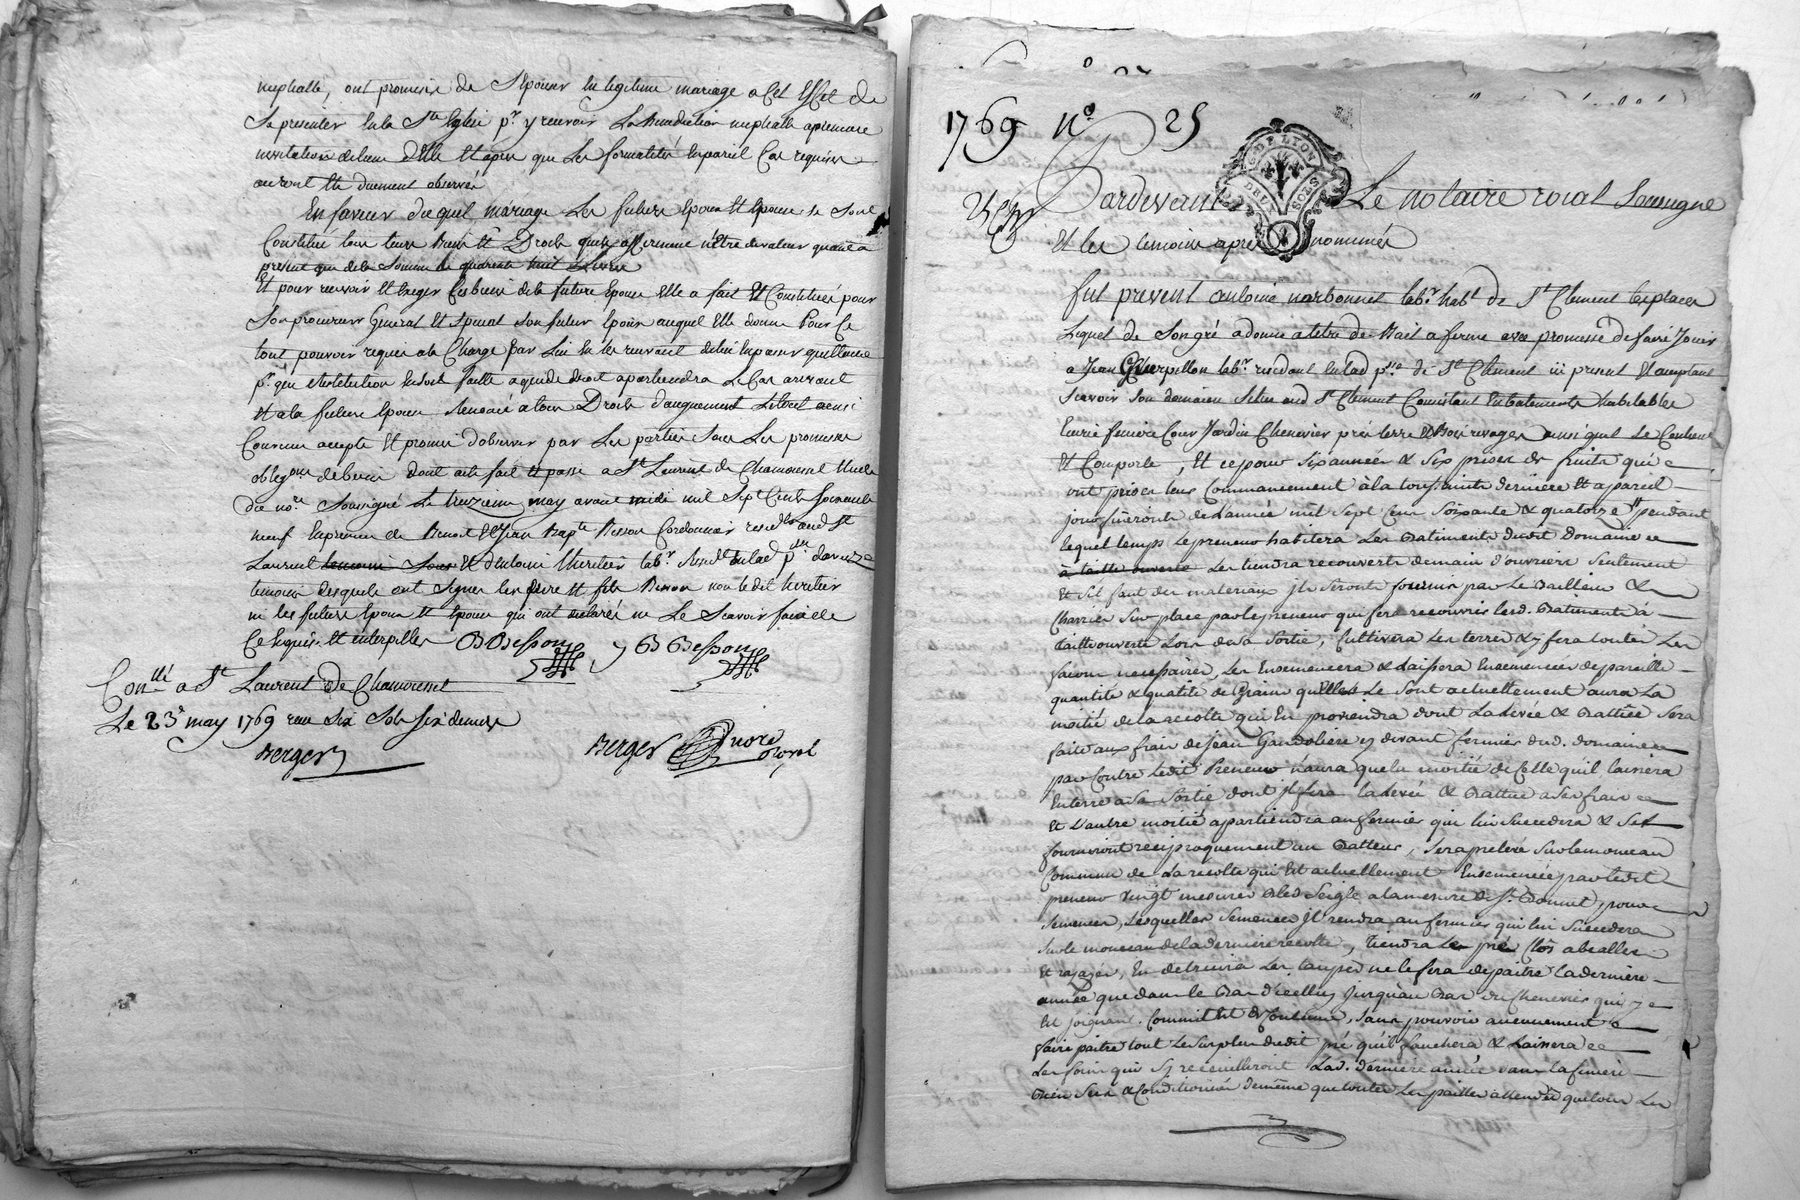 nuptialle, ont promis de S'Epouser en legitime mariage a Cet Effet de
Se presenter en la Ste Eglise pr. y recevoir La Benediction nuptialle a premiere
invitation de l'un d'Elle Et apres que Les formalités en pareil Cas requises
auront Eté duement observées
En faveur duquel mariage Les futurs Epoux Et Epouse se Sont
Constitué tous leurs Biens Et Droits quils affirment n'être de valeur quant a
present que de la Somme de quarente huit Livres
Et pour recevoir Et Exiger les biens de la future Epouse Elle a fait Et Constitué pour
Son procureur General Et Special Son futur Epoux auquel Elle donne Pour Ce
tout pouvoir requis a la Charge par Lui
pr. que restitution en soit faitte a qui de droit apartiendra Le Cas arrivant
Et a la future Epouse Droits ainsi
Convenu accepté Et promis d'observer par Les parties Sous Les promesses
obligons de biens dont acte fait Et passé a St Laurent de Chamousset Etude
du nore. Soussigné Le treizieme may avant midi mil Sept Cents Soixante
neuf En presence de Benoit Et Jean Bapte Besson Cordonnier residts aud St
Laurent Et d'antoine lheritier labr. Resid. en lad. pse.
temoins desquels ont Signés les pere Et fils Besson non le dit heritier
ni les futurs Epoux Et Epouse qui ont declarés ne Le Scavoir faire de
Ce Enquis Et interpellés B Besson J B Besson
Conllé a St Laurent de Chamousset
Le 23e may 1769 reçu Six Sols Six deniers
Berger Berger Nore Royal
1769 no 25
G. DE LYON
DEUX SOLS
Pardevant Le notaire roial Soussigné
Et les temoins apres nommés
fut present antoine narbonnet labr. habt. de St Clement les places
Lequel de Son gré a donné a titre de Bail a ferme avec promesse de faire Jouir
a Jean Guerpillon labr. residant en lad pse de St Clement ici present Et acceptant
Scavoir Son domaine Situé aud St Clement Consistant en batiments habitables
Ecurie feniere Cour Jardin Chenevier prés terre & Bois ainsi quil Se Contient
Et Comporte, Et ce pour Six années & Six prises de fruits qui
ont prises leur Commancement à la toussainte derniere Et a pareil
jour finiront de l'année mil Sept Cent Soixante & quatorze, pendant
lequel temps le preneur habitera Les Batiments dudit Domaine
à taille ouverte Les tiendra recouverts demain d'ouvriers Seulement
Et S'il faut des materiaux jls Seront fournis par le Bailleur &
Charriés Sur place par le preneur qui fera recouvrir lesd. Batiments à
taille ouverte Lors de sa Sortie, Cultivera Les terres & y fera toutes Les
facons necessaires, Les Ensemencera & Laissera Ensemencées de pareille
quantité & qualité de Grains qu'Elles Le Sont actuellement aura La
moitié de la recolte qui En proviendra dont La Levée & Battüe Sera
faite aux frais de Jean Gandoliere cy devant fermier dud. domaine
par Contre Ledit Preneur n'aura que la moitié de Celle qu'il laissera
En terre a Sa Sortie dont jl fera la Levée & Battüe a Ses frais
Et L'autre moitié apartiendra au fermier qui lui Succedera &
fourniront reciproquement un Batteur, Sera prelevé Sur le monceau
Commun de La recolte qui Est actuellement Ensemencée par ledit
preneur Vingt mesures Bled Seigle a la mesure de St. Bonnet, pour
Semences, Lesquelles Semences jl rendra au fermier qui lui Succedera
Sur le monceau de la derniere recolte, tiendra Les prés Clos
Et razés, En detruira Les taupes ne le fera depaitre la derniere
année que dans le Bas d'icelluy Jusqu'au Bas du Chenevier qui y
Est joignant, Comme Est de Coutume, Sans pouvoir aucunement
faire paitre tout Le Surplus dudit pré qu'il fauchera & Laissera
Les foins qui Sy recueilleront Lad. derniere année dans la feniere
Bien Secs & Conditionnés de même que toutes Les pailles attendu que lors